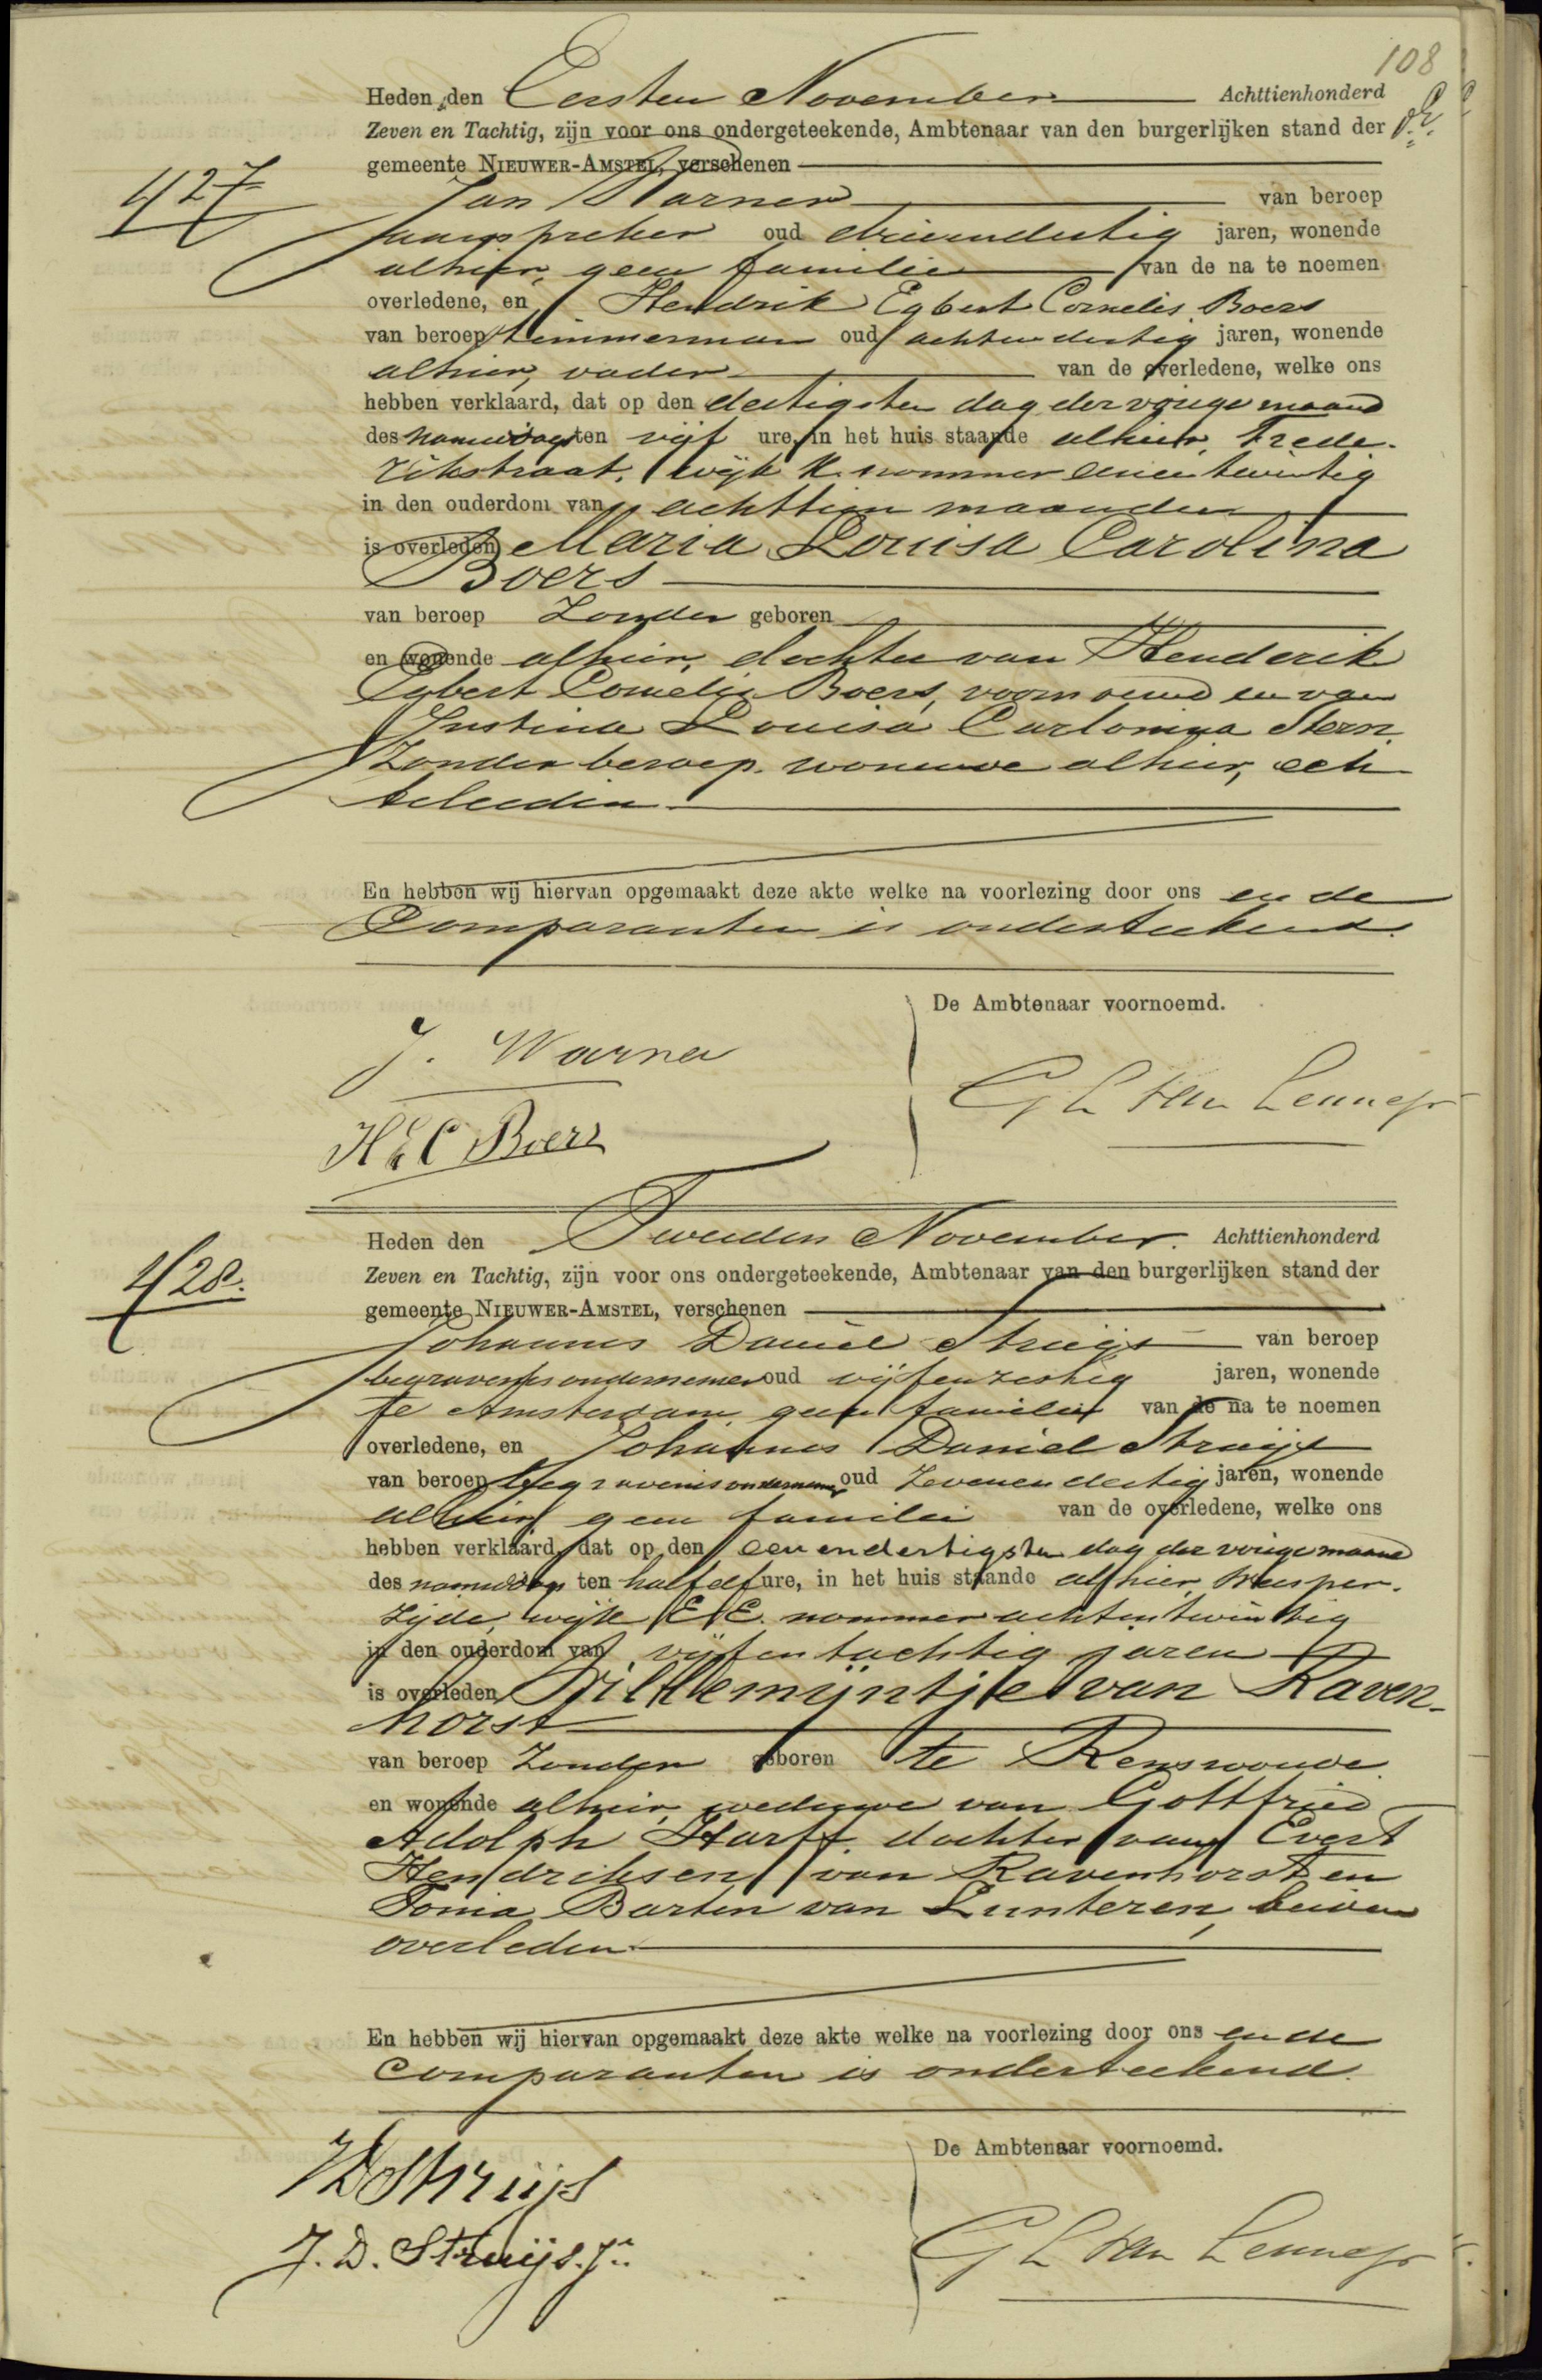 108
Heden den Eersten November Achttienhonderd
Zeven en Tachtig, zijn voor ons ondergeteekende, Ambtenaar van den burgerlijken stand der
gemeente NIEUWER-AMSTEL, verschenen
427
Jan Warner van beroep
aanspreker oud drieendertig jaren, wonende
alhier, geen familie van de na te noemen
overledene, en Hendrik Egbert Cornelis Boers
van beroep timmerman oud achtendertig jaren, wonende
alhier, vader van de overledene, welke ons
hebben verklaard, dat op den dertigsten dag der vorige maand
des namiddags ten vijf ure, in het huis staande alhier, Frede-
rikstraat, wijk K. nommer eenentwintig
in den ouderdom van achttien maanden
is overleden Maria Louisa Carolina
Boers
van beroep Zonder geboren
en wonende alhier, dochter van Henderik
Egbert Cornelis Boers, voornoemd en van
Justina Louisa Carlonina Stern,
Zonder beroep, wonende alhier, ech
telieden.
En hebben wij hiervan opgemaakt deze akte welke na voorlezing door ons en de
Comparanten is onderteekend.
De Ambtenaar voornoemd.
J. Warner
G L van Lennep
H E C Boers
Heden den Tweeden November. Achttienhonderd
428.
Zeven en Tachtig, zijn voor ons ondergeteekende, Ambtenaar van den burgerlijken stand der
gemeente NIEUWER-AMSTEL, verschenen
Johannes Daniel Struijs van beroep
begrafenisondernemer oud vijfenzestig jaren, wonende
te Amsterdam, geen familie van de na te noemen
overledene, en Johannes Daniel Struijs
van beroep begravenisondernemer oud Zevenendertig jaren, wonende
alhier, geen familie van de overledene, welke ons
hebben verklaard, dat op den eenendertigsten dag der vorige maand
des namiddags ten half elf ure, in het huis staande alhier, Weesper-
zijde, wijk E.E. nommer achtentwintig
in den ouderdom van vijfentachtig jaren
is overleden Willemijntje van Raven-
horst
van beroep Zonder geboren te Renswoude
en wonende alhier, weduwe van Gottfried
Adolph Harff, dochter van Evert
Hendriksen van Ravenhorst en
Tonia Barten van Lunteren, beiden
overleden.
En hebben wij hiervan opgemaakt deze akte welke na voorlezing door ons en de
comparanten is onderteekend.
De Ambtenaar voornoemd.
JD Struijs
G L van Lennep
J. D. Struijs. Jr.